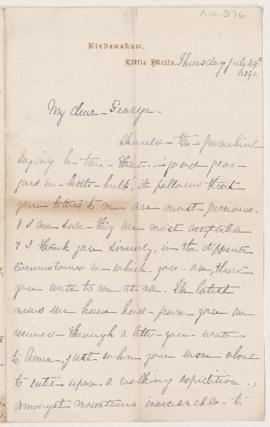 Acc. 376
Birkenshaw,
Little Wells.
Thursday July 24th
My dear George.
Should the proverbial
saying be true that "good gear
goes in little bulk" it follows that
your letters to me are most precious
& I am sure they are most acceptable
& I thank you sincerely, in the difficult
circumstances in which you are, that
you write to me at all. The latest
news we have had from you we
received through a letter you wrote
to Anna, just when you were about
to enter upon a walking expedition,
amongst mountains inaccessible to